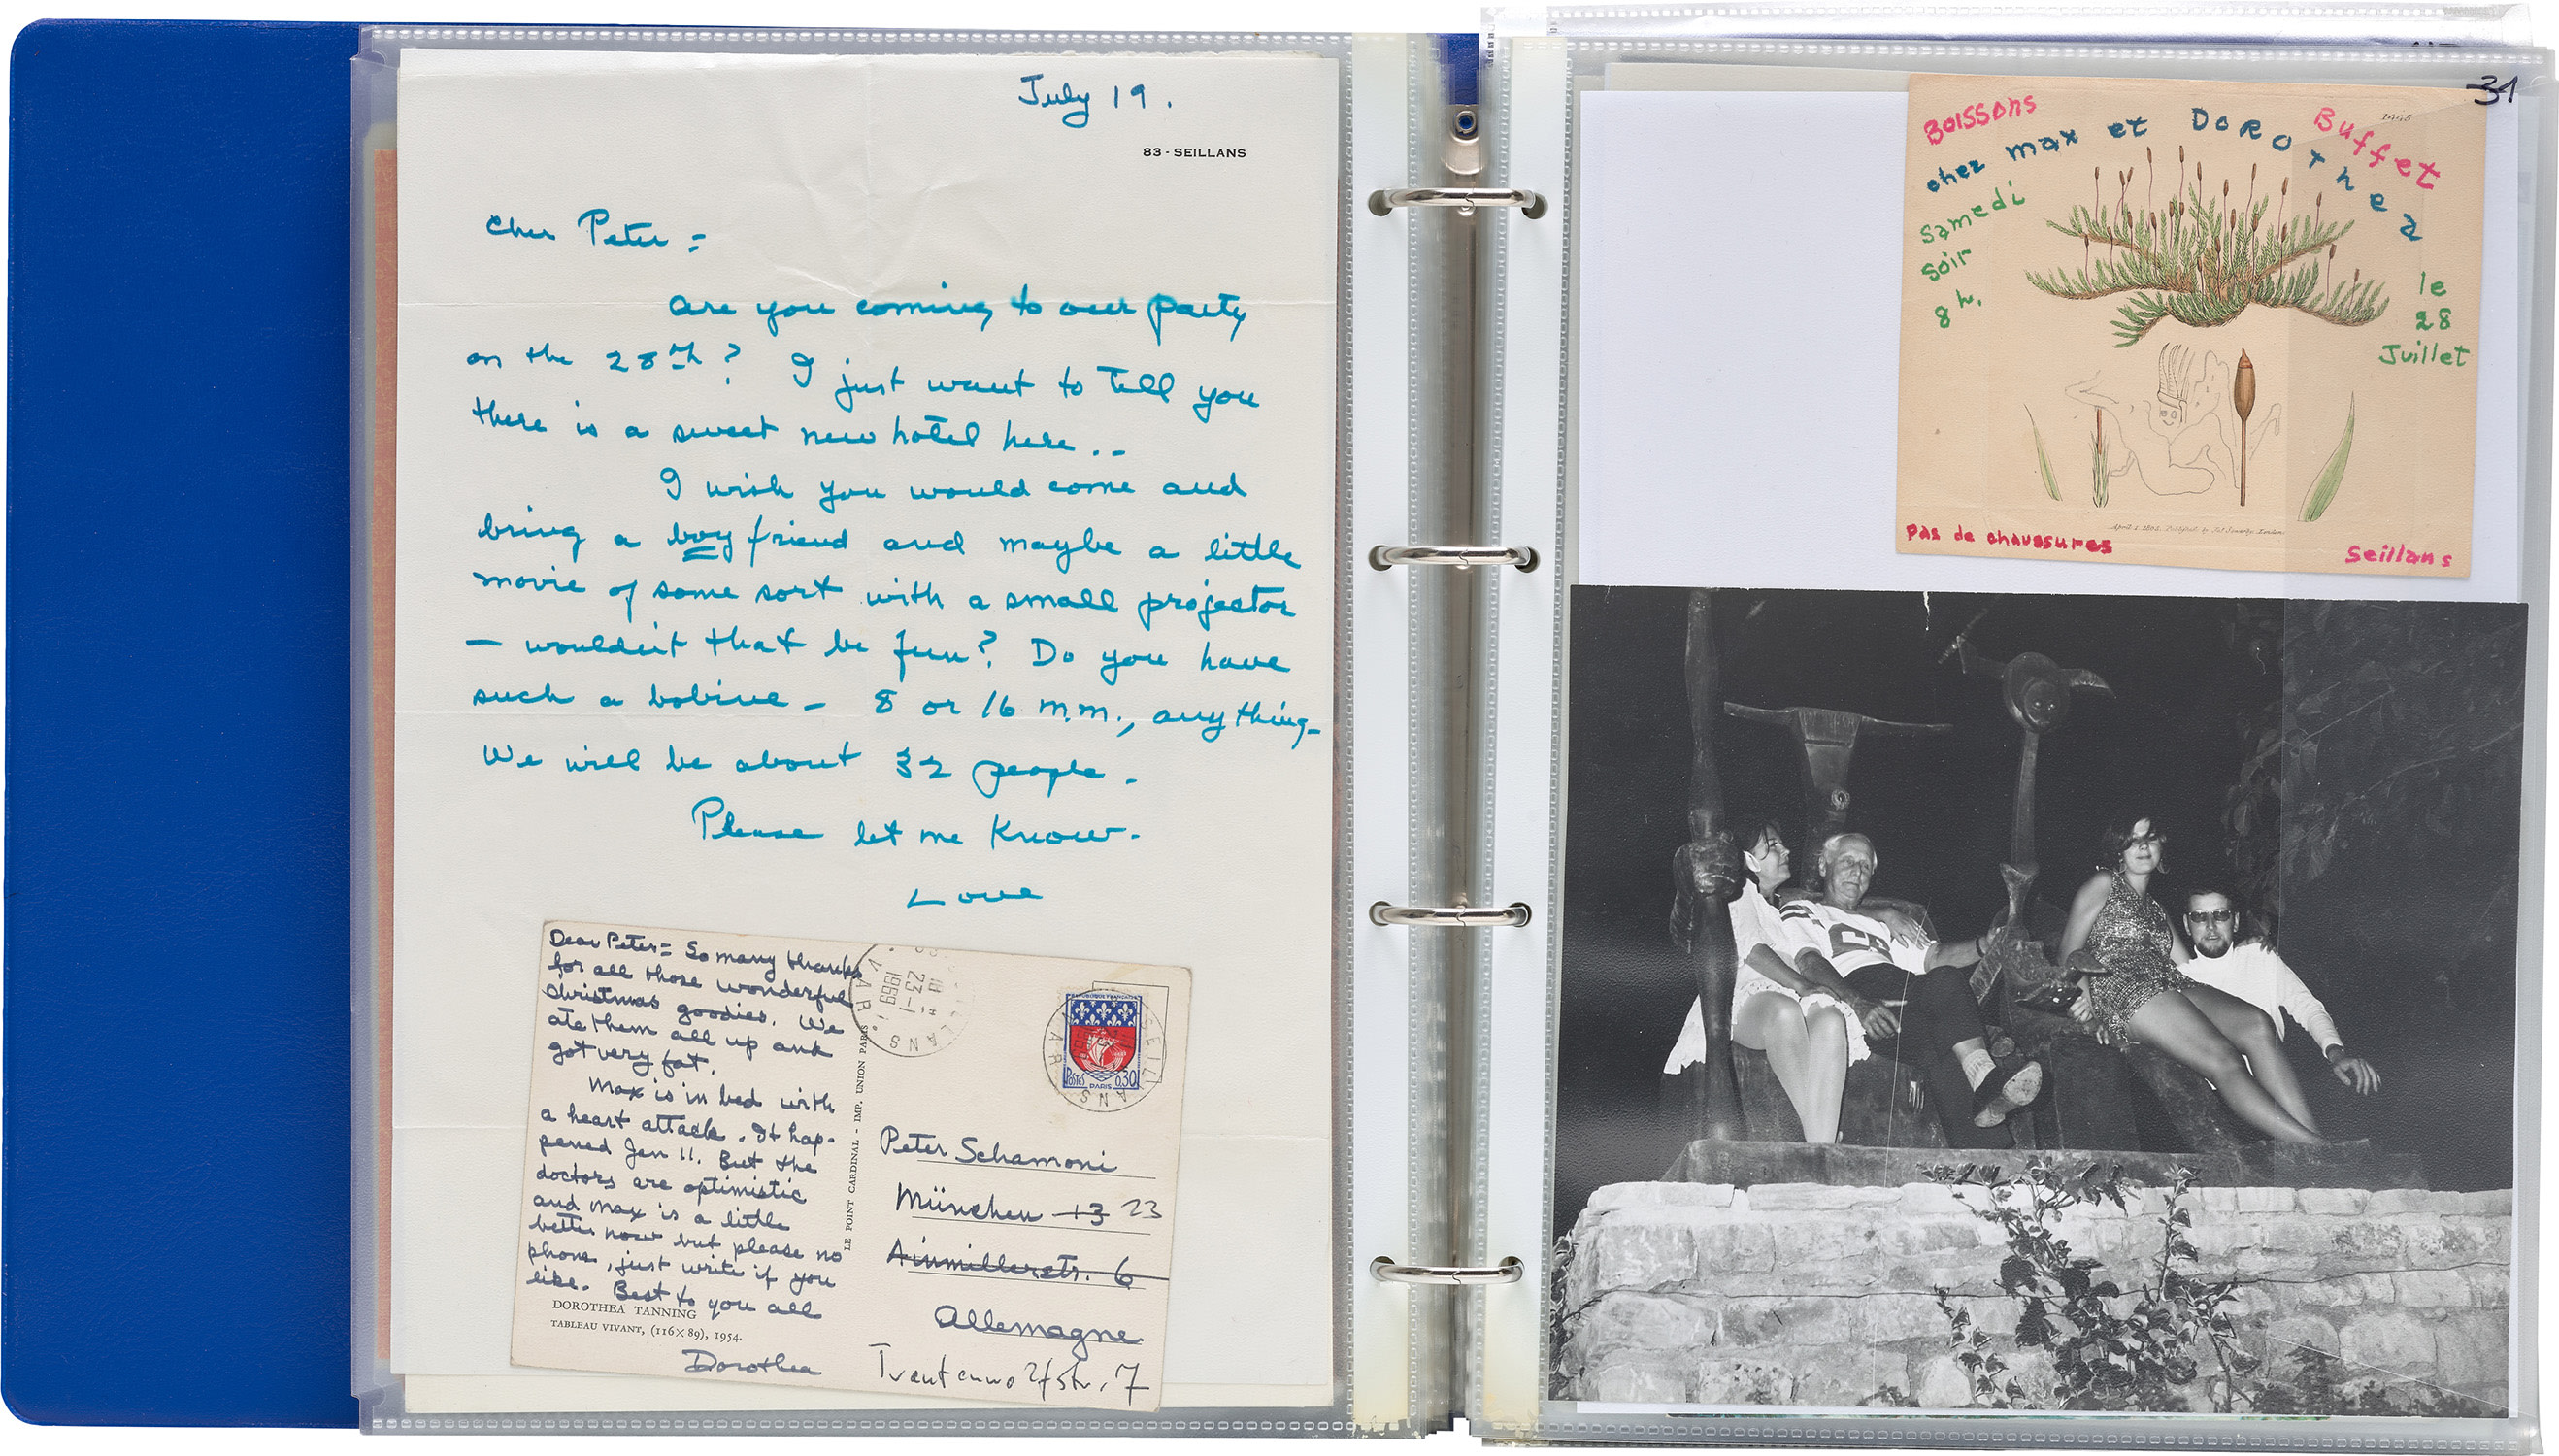 July 19.
83 - SEILLANS
Cher Peter =
are you coming to our party
on the 28th? I just want to tell you
there is a sweet new hotel here..
I wish you would come and
bring a boy friend and maybe a little
movie of some sort with a small projector
— wouldn't that be fun? Do you have
such a bobine — 8 or 16 m.m., anything —
We will be about 32 people.
Please let me know.
Love
Dear Peter = So many thanks
for all those wonderful
Christmas goodies. We
ate them all up and
got very fat.
Max is in bed with
a heart attack. It hap-
pened Jan 11. But the
doctors are optimistic
and Max is a little
better now but please no
phone, just write if you
like. Best to you all
DOROTHEA TANNING
TABLEAU VIVANT, (116×89), 1954.
Dorothea
LE POINT CARDINAL - IMP. UNION PARIS
23-1
1969
VAR
SEILLANS
REPUBLIQUE FRANÇAISE
POSTES
PARIS
0,30
Peter Schamoni
München 13 23
Ainmillerstr. 6
Allemagne
31
1445
Boissons
Buffet
chez max et DOROThea
Samedi
soir
8 h.
le
28
Juillet
April 1. 1803. Published by Jas Sowerby. London
pas de chaussures
Seillans